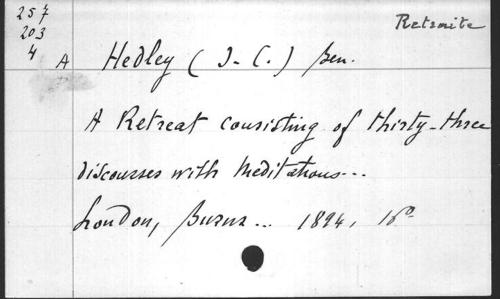 257
203
4
Retraite
A Hedley (J-C.) Ben.
A Retreat consisting of thirty-three
discourses with Meditations...
London, Burns... 1894, 16°